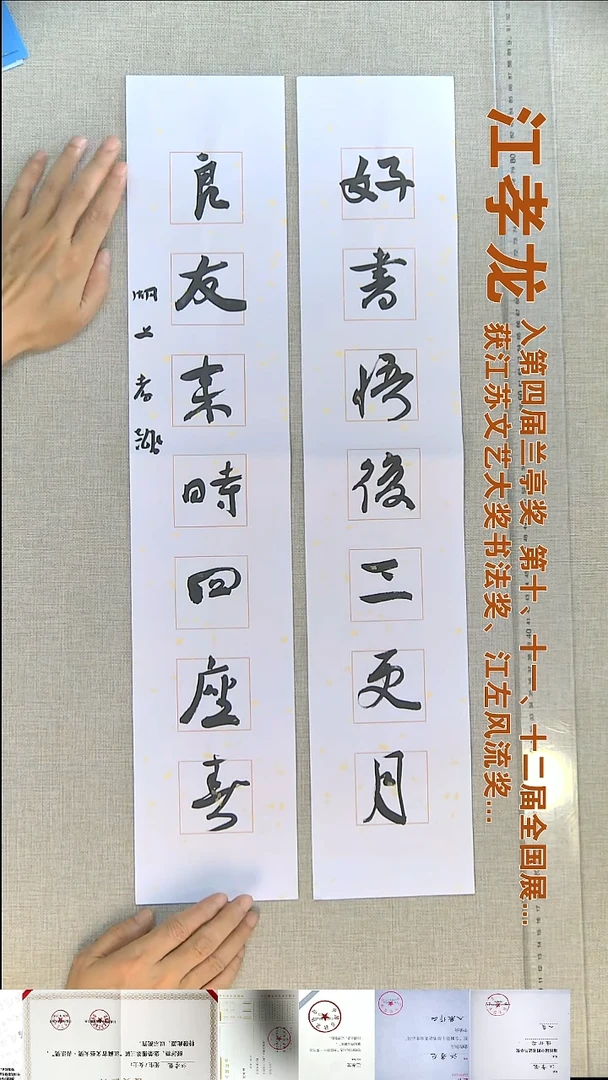 江孝龙
入第四届兰亭奖 第十、十一、十二届全国展...
获江苏文艺大奖书法奖、江左风流奖...
好書悟後三更月
良友来時四座春
湖上孝龍